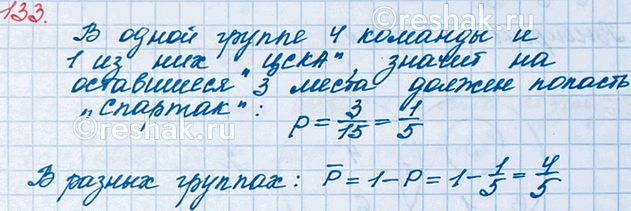 133.
В одной группе 4 команды и
1 из них "ЦСКА", значит на
оставшиеся 3 места должен попасть
„Спартак": P = 3/15 = 1/5
В разных группах: P̅ = 1 - P = 1 - 1/5 = 4/5
©reshak.ru
©reshak.ru